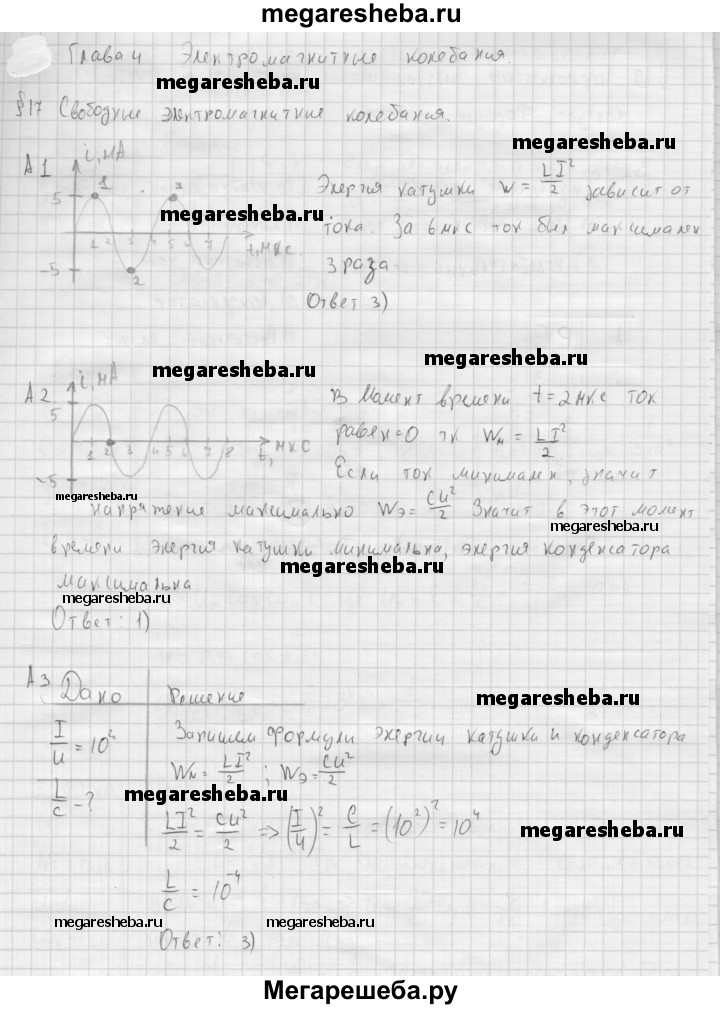 megaresheba.ru
Глава 4 Электромагнитные колебания.
megaresheba.ru
§17 Свободные электромагнитные колебания.
megaresheba.ru
А1
i, мА
5
1
3
1 2 3 4 5 6 7
t, мкс
-5
2
megaresheba.ru
Энергия катушки W = LI²/2 зависит от
тока. За 6 мкс ток был максимален
3 раза
Ответ 3)
megaresheba.ru
megaresheba.ru
А2
i, мА
5
1 2 3 4 5 6 7 8
t, мкс
-5
В момент времени t = 2 мкс ток
равен = 0 тк Wм = LI²/2
Если ток минимален, значит
megaresheba.ru
напряжение максимально Wэ = CU²/2 Значит в этот момент
megaresheba.ru
времени энергия катушки минимальна, энергия конденсатора
megaresheba.ru
максимальна
megaresheba.ru
Ответ: 1)
А3
Дано
Решение
megaresheba.ru
I/U = 10²
L/C - ?
Запишем формулы энергии катушки и конденсатора
Wм = LI²/2 ; Wэ = CU²/2
megaresheba.ru
LI²/2 = CU²/2 => (I/U)² = C/L = (10²)² = 10⁴
megaresheba.ru
L/C = 10⁻⁴
megaresheba.ru
megaresheba.ru
Ответ: 3)
Мегарешеба.ру